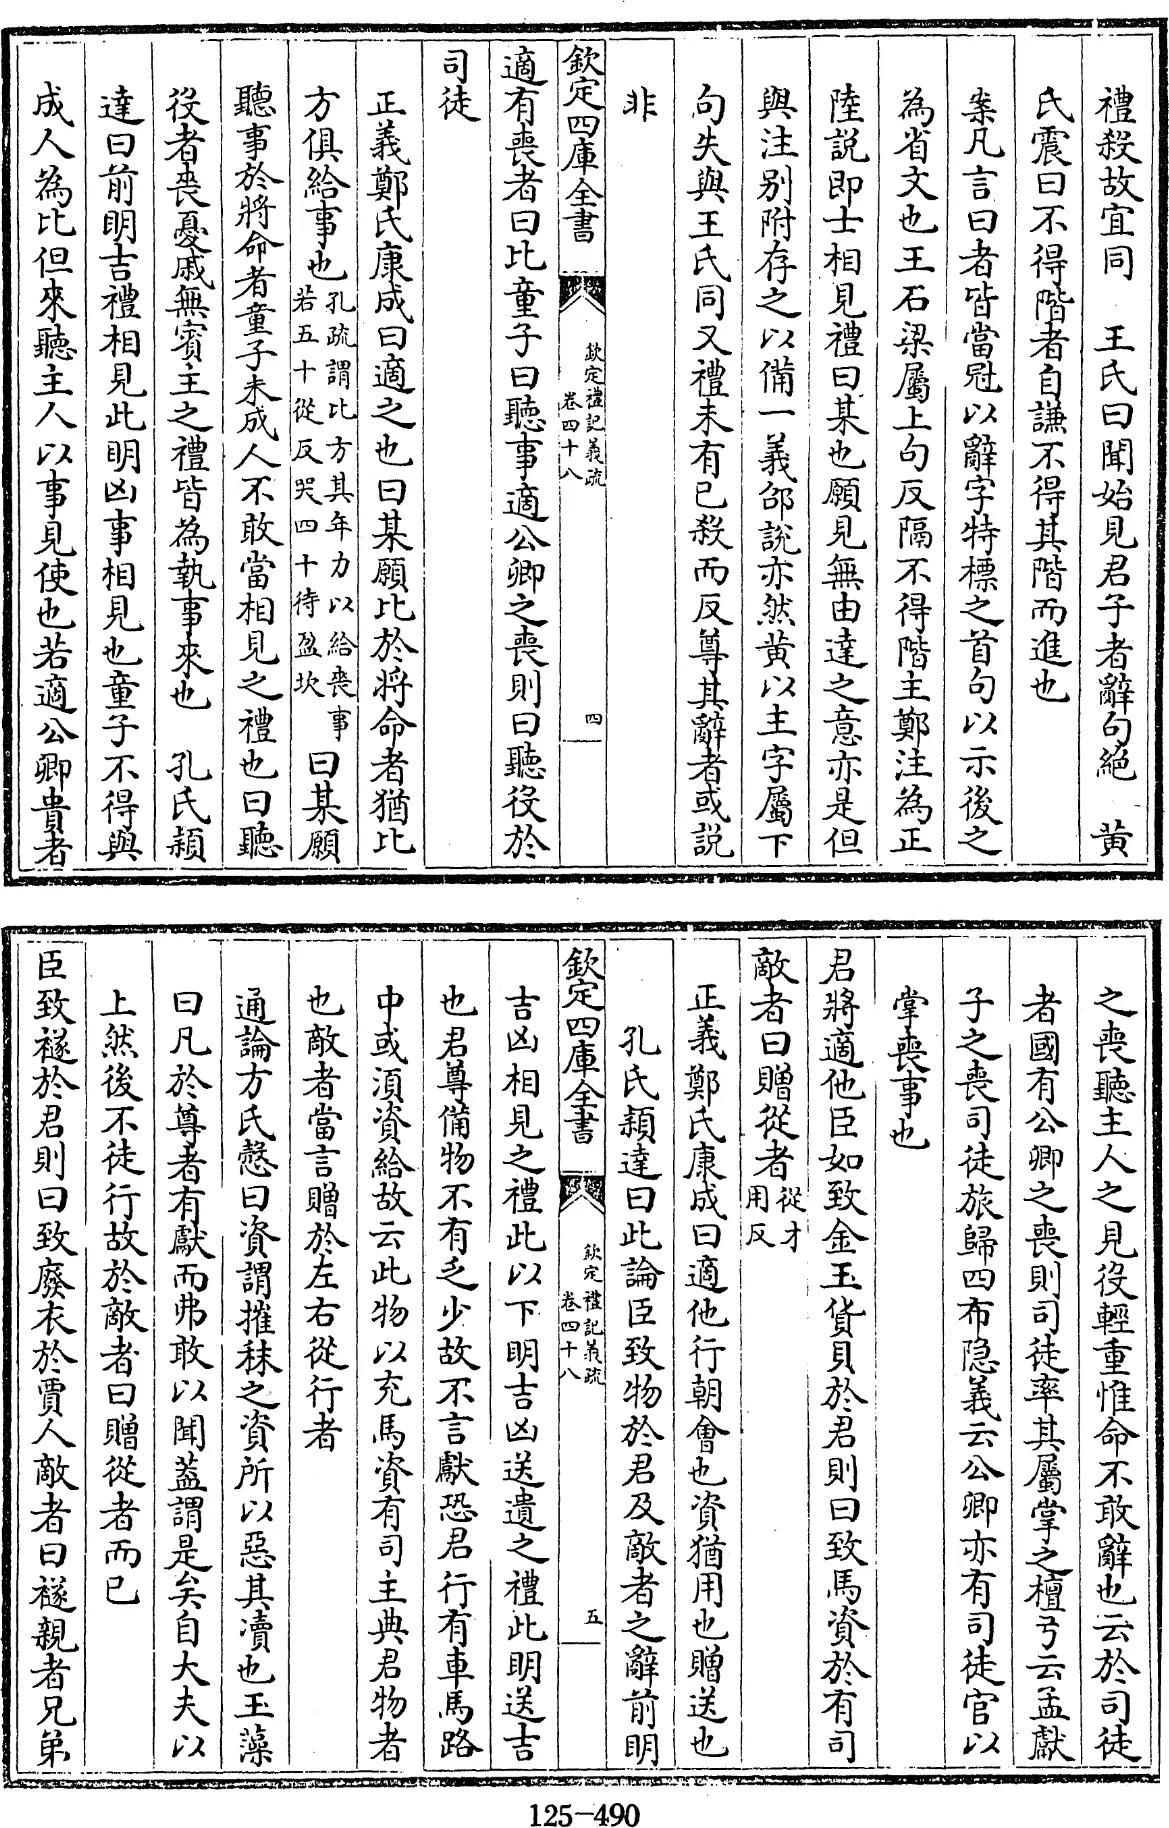 禮殺故宜同　王氏曰聞始見君子者辭句絕　黄
氏震曰不得階者自謙不得其階而進也
案凡言曰者皆當冠以辭字特標之首句以示後之
為省文也王石梁屬上句反隔不得階主鄭注為正
陸說即士相見禮曰某也願見無由達之意亦是但
與注别附存之以備一義邰說亦然黄以主字屬下
句失與王氏同又禮未有已殺而反尊其辭者或説
非
欽定四庫全書
欽定禮記義疏
卷四十八
四
適有喪者曰比童子曰聽事適公卿之喪則曰聽役於
司徒
正義鄭氏康成曰適之也曰某願比於將命者猶比
方俱給事也孔疏謂比方其年力以給喪事若五十從反哭四十待盈坎曰某願
聽事於將命者童子未成人不敢當相見之禮也曰聽
役者喪憂戚無賓主之禮皆為執事來也　孔氏穎
達曰前明吉禮相見此明凶事相見也童子不得與
成人為比但來聽主人以事見使也若適公卿貴者
之喪聽主人之見役輕重惟命不敢辭也云於司徒
者國有公卿之喪則司徒率其屬掌之檀弓云孟獻
子之喪司徒旅歸四布隐義云公卿亦有司徒官以
掌喪事也
君將適他臣如致金玉貨貝於君則曰致馬資於有司
敵者曰贈從者從才用反
正義鄭氏康成曰適他行朝會也資猶用也贈送也
孔氏穎達曰此論臣致物於君及敵者之辭前明
欽定四庫全書
欽定禮記義疏
卷四十八
五
吉凶相見之禮此以下明吉凶送遺之禮此明送吉
也君尊備物不有乏少故不言獻恐君行有車馬路
中或湏資給故云此物以充馬資有司主典君物者
也敵者當言贈於左右從行者
通論方氏慤曰資謂摧秣之資所以惡其凟也玉藻
曰凡於尊者有獻而弗敢以聞葢謂是矣自大夫以
上然後不徒行故於敵者曰贈從者而已
臣致襚於君則曰致廢衣於賈人敵者曰襚親者兄弟
125-490